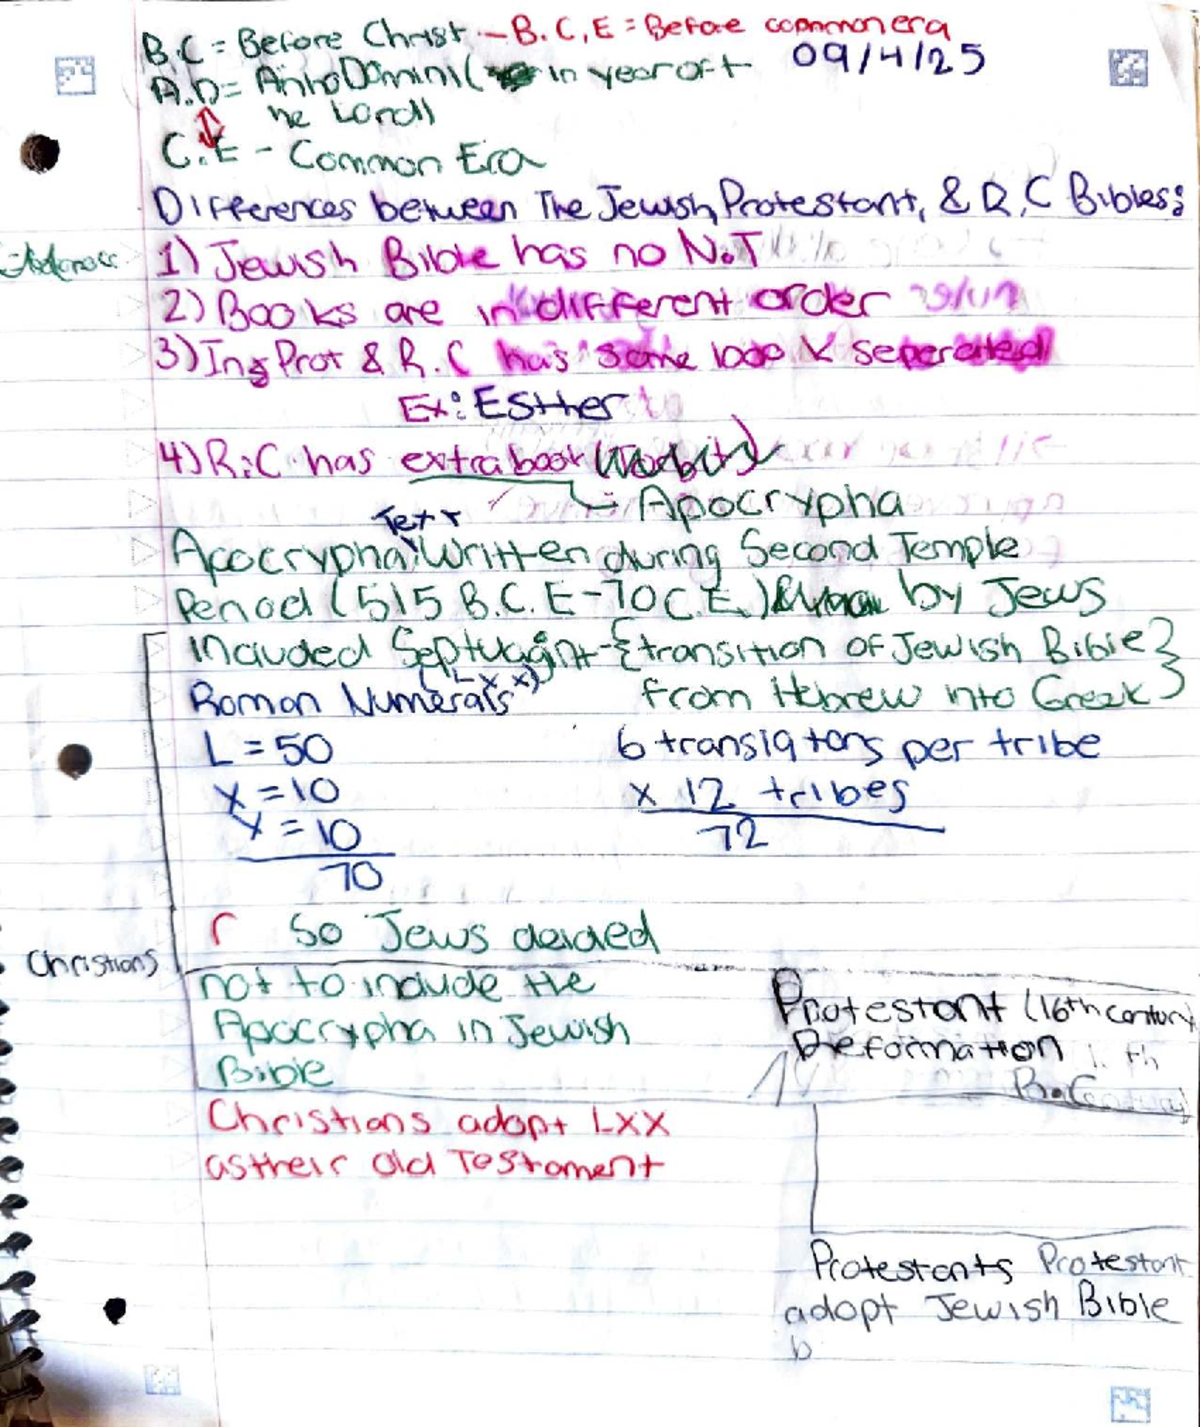 B.C = Before Christ - B.C.E = Before common era
09/4/25
A.D = Anno Domini ( in year oft
he Lord))
C.E - Common Era
Differences between The Jewish, Protestant, & R.C Bibles:
1) Jewish Bible has no N.T
2) Books are in different order
3) In Prot & R.C has some book seperated
Ex: Esther
4) R.C has extra book
- Apocrypha
Text
Apocrypha: Written during Second Temple
Period (515 B.C.E-70 C.E.) by Jews
Included Septuagint - {transition of Jewish Bible}
(Lxx)
Roman Numerals from Hebrew into Greek}
L = 50 6 translators per tribe
x = 10 x 12 tribes
x = 10 72
70
So Jews decided
Christians
not to include the
Apocrypha in Jewish
Bible
Protestant (16th century)
Reformation
Christians adopt LXX
as their Old Testament
Protestants Protestant
adopt Jewish Bible
b